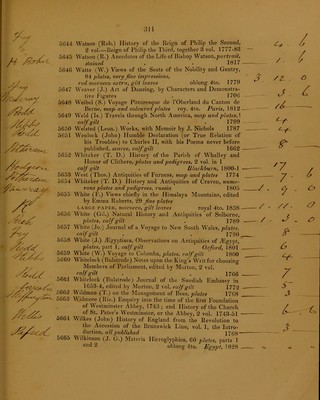 311
5644 Watson (Rob.) History of the Reign of Philip the Second,
2 vol.—Reign of Philip the Third, together 3 vol. 1777-83
5645 Watson (R.) Anecdotes of the Life of Bishop Watson, portrait,
stained 1817
5646 Watts (W.) Views of the Seats of the Nobility and Gentry,
84 plates, very fine impressions,
red morocco extra, gilt leaves oblong 4to. 1779
5647 Weaver (J.) Art of Dancing, by Characters and Demonstra-
tive Figures 1706
5648 Weibel (S.) Voyage Pittoresque de l'Oberland du Canton de
Berne, map and coloured plates roy. 4to. Paris, 1812
5649 Weld (Is.) Travels through North America, map and plates,
calf gilt 1799
5650 Welsted (Leon.) Works, with Memoir by J. Nichols 1787
5651 Wenlock (John) Humble Declaration (or True Relation of
his Troubles) to Charles II, with his Poems never before
published, scarce, calf gilt 1662
5652 Whitaker (T. D.) History of the Parish of Whalley and
Honor of Clithero, plates and pedigrees, 2 vol. in 1
calf gilt Blackburn, 1800-1
5653 West (Thos.) Antiquities of Furness, map and plates 1774
5654 Whitaker (T. D.) History and Antiquities of Craven, nume-
rous plates and pedigrees, russia 1805
5655 White (F.) Views chiefly in the Himalaya Mountains, edited
by Emma Roberts, 29 fine plates
LARGE PAPER, morocco, gilt leaves royal 4to. 1838
5656 White (Gil.) Natural History and Antiquities of Selborne,
plates, calf gilt 1789
5657 White (Jo.) Journal of a Voyage to New South Wales, plates,
calf gilt 1790
5658 White (J.) Ægyptiaca, Observations on Antiquities of Ægypt,
plates, part 1, calf gilt Oxford, 1801
5659 White (W.) Voyage to Columbo, plates, calf gilt 1800
5660 Whitelock (Bulstrode) Notes upon the King's Writ for choosing
Members of Parliament, edited by Morton, 2 vol.
calf gilt 1766
5661 Whitelock (Bulstrode) Journal of the Swedish Embassy in
1653-4, edited by Morton, 2 vol. calf gilt 1772
5662 Wildman (T.) on the Management of Bees, plates 1768
5663 Widmore (Ric.) Enquiry into the time of the first Foundation
of Westminster Abbey, 1743; and History of the Church
of St. Peter's Westminster, or the Abbey, 2 vol. 1743-51
5664 Wilkes (John) History of England from the Revolution to
the Accession of the Brunswick Line, vol. I, the Intro-
duction, all published 1768
5665 Wilkinson (J. G.) Materia Hieroglyphica, 60 plates, parts 1
and 2 oblong 4to. Egypt, 1828